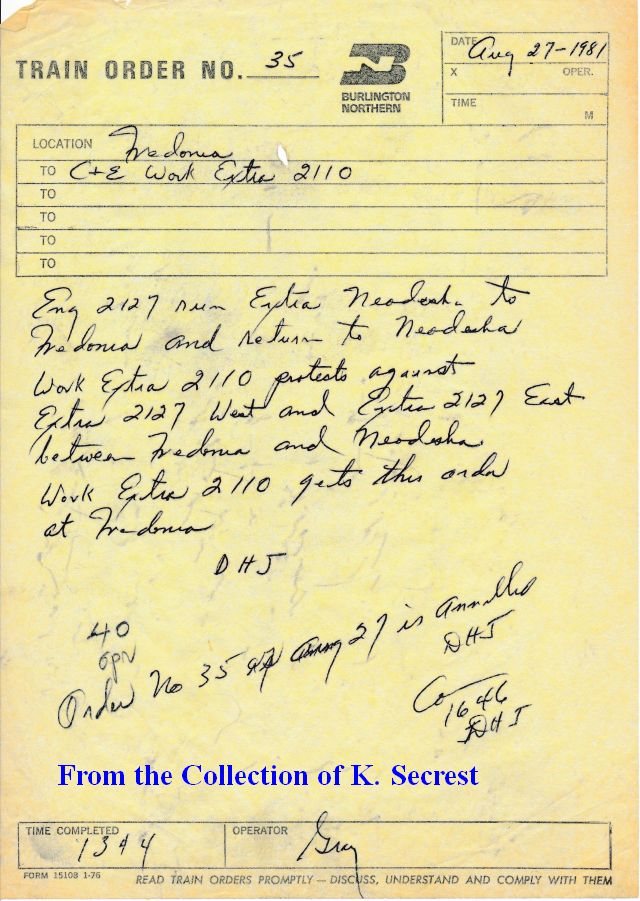 TRAIN ORDER NO. 35
BURLINGTON
NORTHERN
DATE Aug 27-1981
X OPER.
TIME M
LOCATION Fredonia
TO C+E Work Extra 2110
TO
TO
TO
TO
Eng 2127 run Extra Neodesha to
Fredonia and return to Neodesha
Work Extra 2110 protects against
Extra 2127 West and Extra 2127 East
between Fredonia and Neodesha
Work Extra 2110 gets this order
at Fredonia
DHJ
40
opr
Order No 35 Aug 27 is Annulled
DHJ
Co
1646
DHJ
From the Collection of K. Secrest
TIME COMPLETED
OPERATOR
Gray
FORM 15108 1-76
READ TRAIN ORDERS PROMPTLY — DISCUSS, UNDERSTAND AND COMPLY WITH THEM